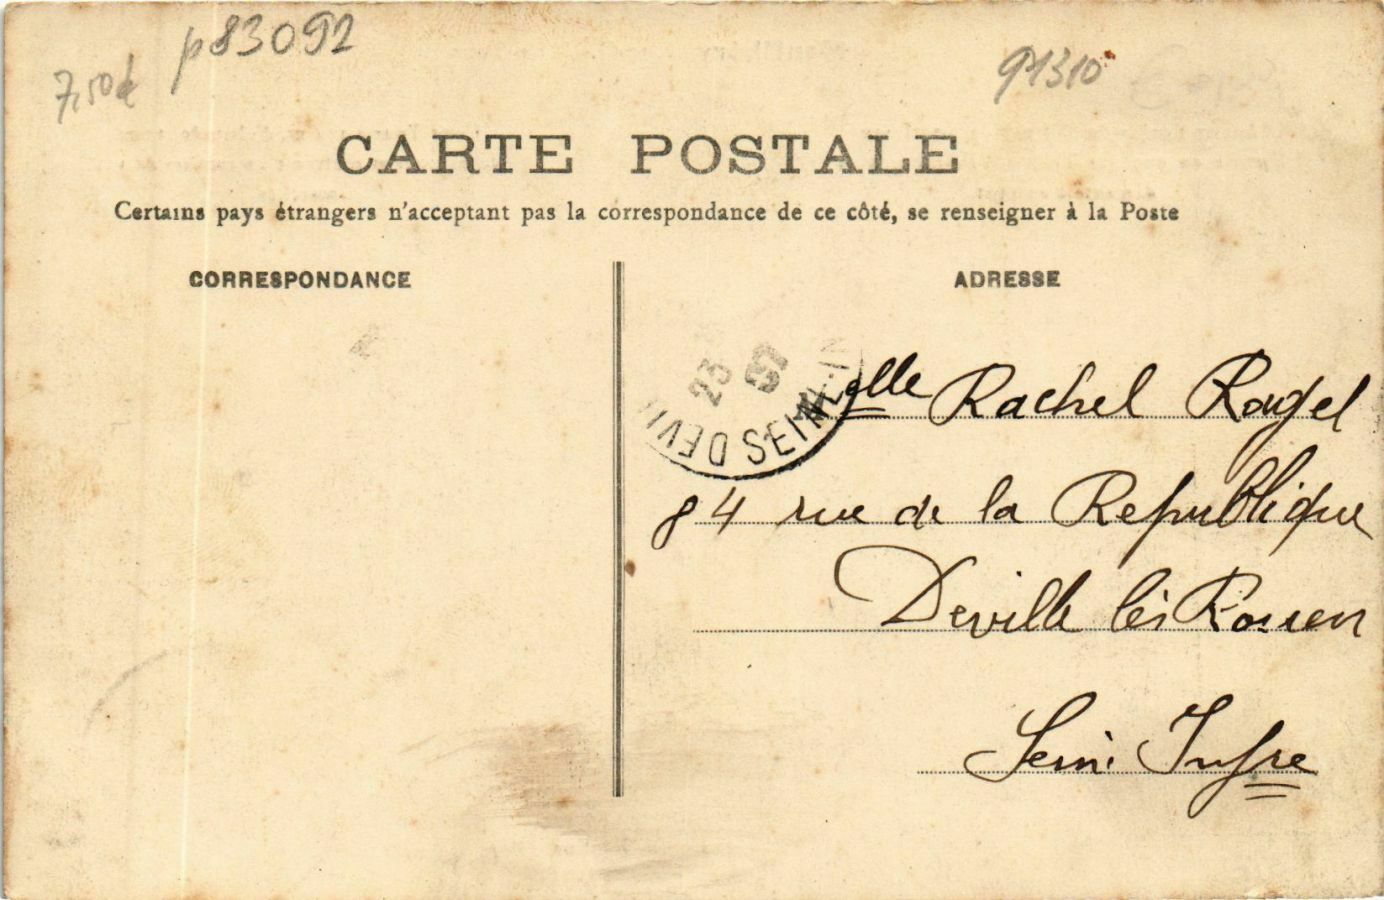 p83092
7,50€
91310
CARTE POSTALE
Certains pays étrangers n'acceptant pas la correspondance de ce côté, se renseigner à la Poste
CORRESPONDANCE
ADRESSE
23
07
DEVIL
SEINE-IN
Melle Rachel Rougel
84 rue de la Republique
Deville lès Rouen
Seine Infre